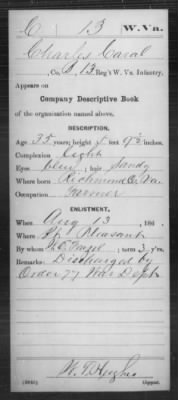 C 13 W. Va.
Charles Caral
, Co. B, 13 Reg't W. Va. Infantry.
Appears on
Company Descriptive Book
of the organization named above.
DESCRIPTION.
Age 35 years; height 5 feet 9½ inches.
Complexion Light
Eyes blue; hair Sandy
Where born Richmond Co. Va.
Occupation Farmer
ENLISTMENT.
When Aug 13, 186 .
Where Pt. Pleasant
By whom ; term 3 y'rs.
Remarks: Discharged by
Order 77 War Dept
W. T. Hughes
Copyist.